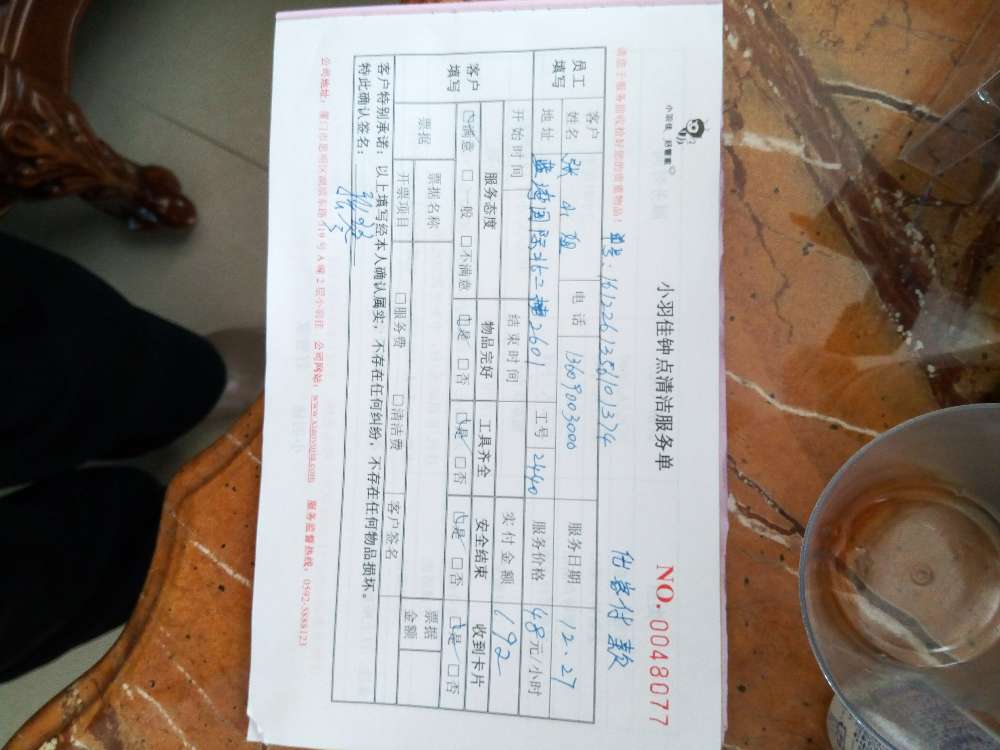 小羽佳 好管家
小羽佳钟点清洁服务单
NO. 0048077
请您于服务前收检好您的贵重物品!
单号: 16122613561101374
代客付款
员工填写
客户姓名 张小姐 电话 13609003000 服务日期 12.27
地址 蓝湾国际 2601 工号 2440 服务价格 48元/小时
开始时间 结束时间 实付金额 192
客户填写
服务态度 物品完好 工具齐全 安全结束 收到卡片
☑满意 □一般 □不满意 ☑是 □否 ☑是 □否 ☑是 □否 ☑是 □否
票据 票据名称 客户签名 票据金额
开票项目 □服务费 □清洁费
客户特别承诺:以上填写经本人确认属实,不存在任何纠纷,不存在任何物品损坏。
特此确认签名:
公司地址:厦门市思明区湖滨东路319号A幢2层小羽佳 公司网站:www.xiaoyujia.com 服务监督热线:0592-5888123